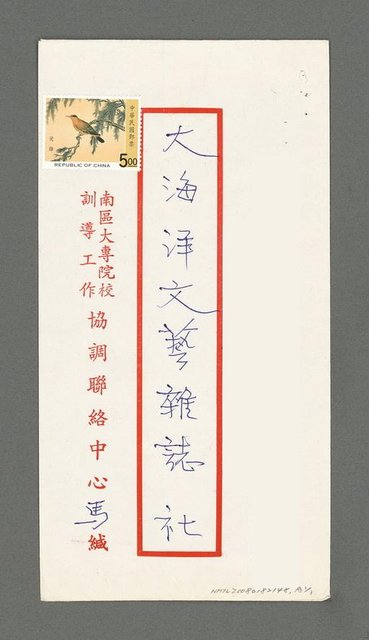 大海洋文藝雜誌社
中華民國郵票
5.00
REPUBLIC OF CHINA
南區大專院校
訓導工作
協調聯絡中心
馬
緘